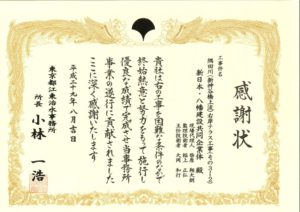 感謝状
工事件名
隅田川(新神谷橋上流)右岸テラス工事(その3)
新日本・八幡建設共同企業体 殿
現場代理人
監理技術者
主任技術者
貴社は右の工事を困難な条件のなかで
終始熱意と努力をもって施行し
優良な成績で完成させ当事務所
事業の遂行に貢献されました
ここに深く感謝いたします
平成二十九年八月吉日
東京都江東治水事務所
所長 小林 一浩